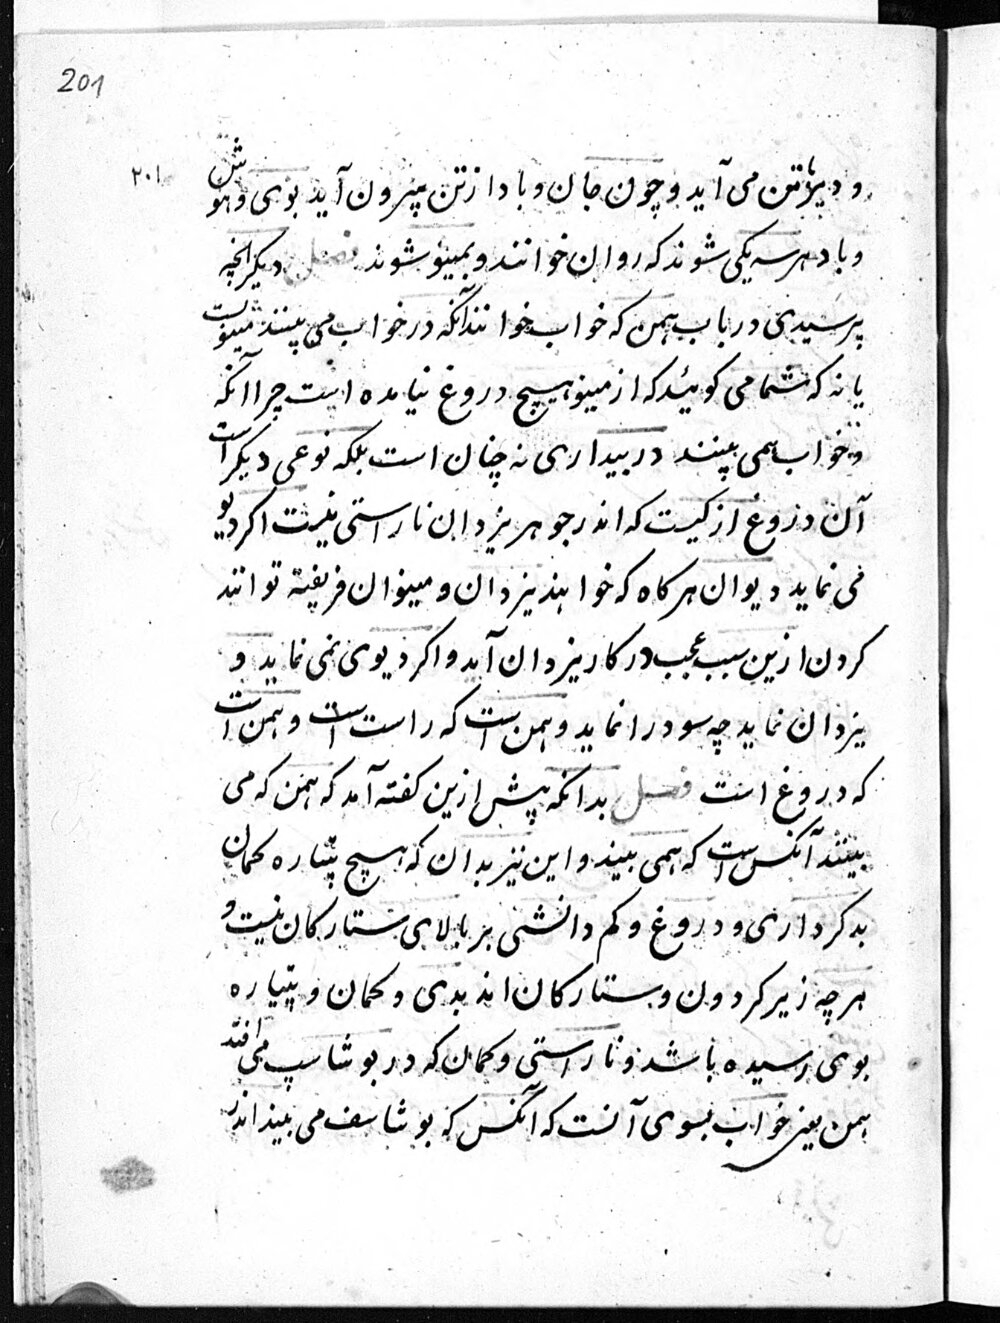 201
۲۰۱
و دیژهٔ تن می آید و چون جان و باد از تن بیرون آید بوی و هوش
و باد هر سه یکی شوند که روان خوانند و بمینو شوند فصل دیگر انچه
پرسیدی در باب بهمن که خواب خوانند آنکه در خواب می بینند مینویست
یا نه که شما می کوئید که از مینو هیچ دروغ نیامده است چرا انکه
خواب همی بینند در بیداری نه چنان است بلکه نوعی دیکر است
آن دروغ از کیست که اندر جوهر یزدان ناراستی نیست اکر دیو
می نماید دیوان هر کاه که خواهند یزدان و مینوان فریفته توانند
کردن ازین سبب عجب در کار یزدان آید و اکر دیوی نمی نماید و
یزدان نماید چه سود را نماید و بهمن است که راست است و بهمن است
که دروغ است فصل بدانکه پیش ازین کفته آمد که بهمن که می
بینند آنکس است که همی بیند و این نیز بدان که هیچ پتیاره کمان
بدکرداری و دروغ و کم دانشی بر بالای ستارکان نیست و
هر چه زیر کردون و ستارکان اند بدی و کمان و پتیاره
بوی رسیده باشد و ناراستی و کمان که در بوشاسپ می افتد
بهمن یعنی خواب بسوی آنست که آنکس که بوشاسف می بیند اندر